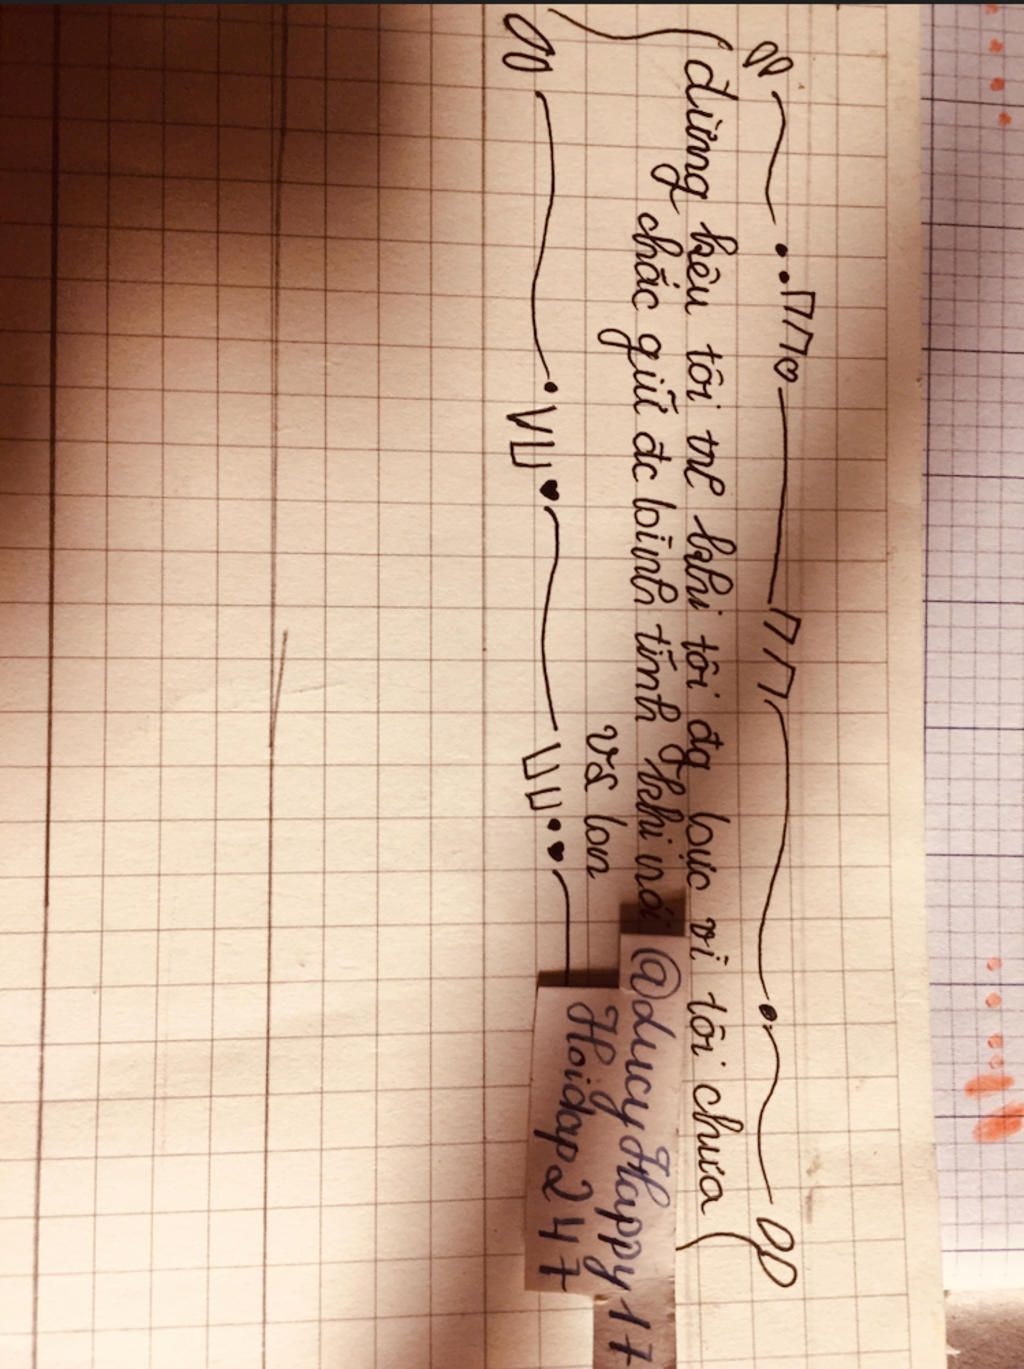 đừng kêu tôi trẻ khi tôi đg bực vì tôi chưa
chắc giữ đc bình tĩnh khi nói
vs bn
@Lucy Happy 17
Hoidap 247